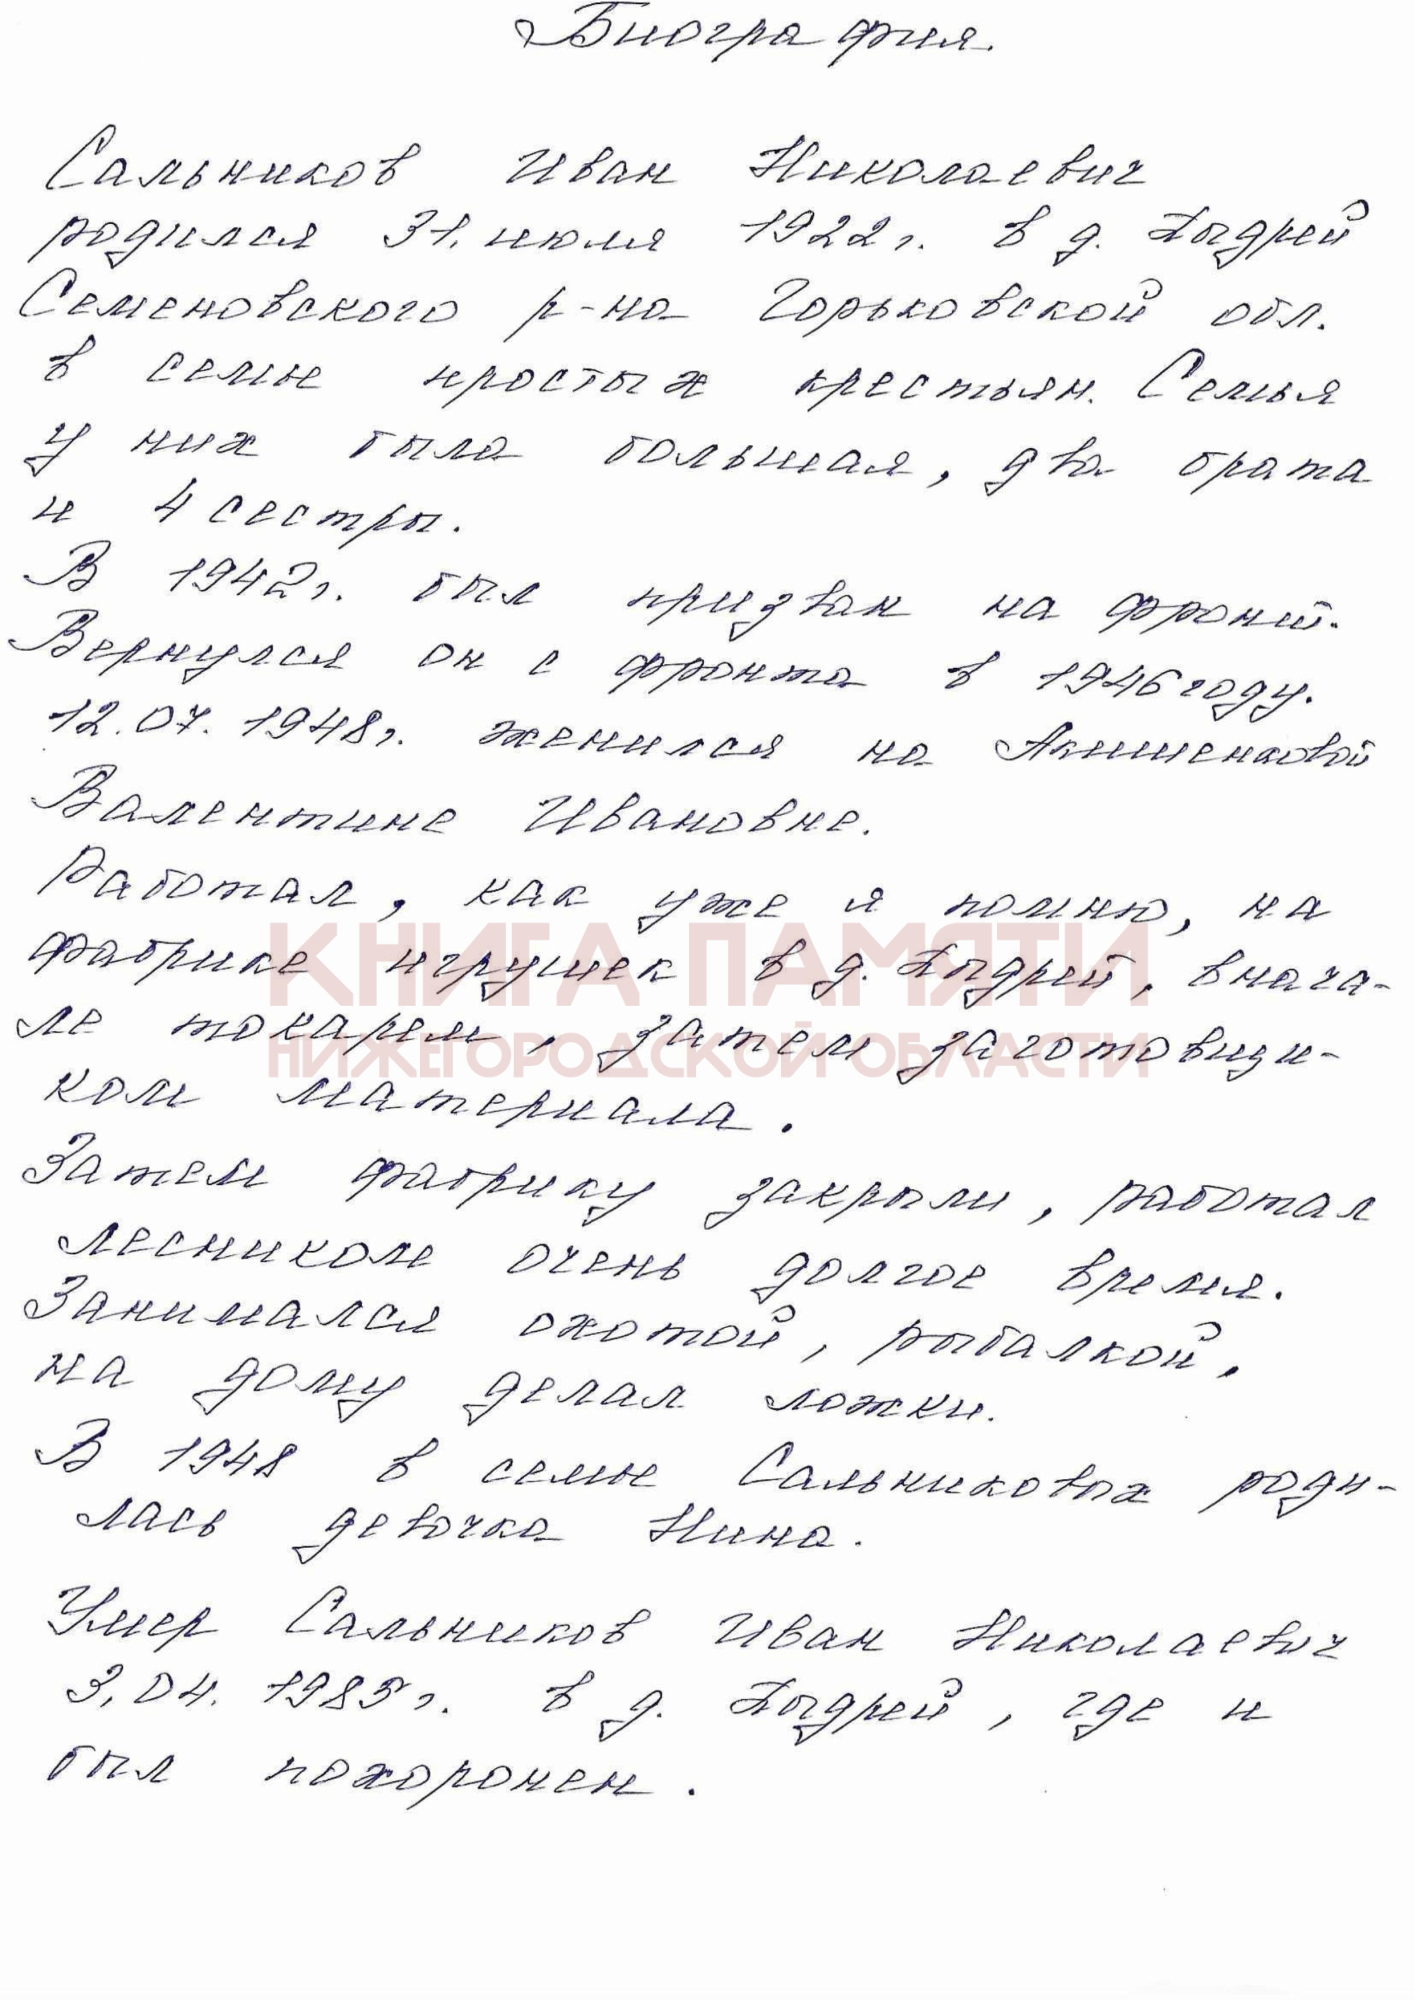 Биография.
Сальников Иван Николаевич
родился 31. июля 1922г. в д. Дыдрей
Семеновского р-на Горьковской обл.
в семье простых крестьян. Семья
у них была большая, два брата
и 4 сестры.
В 1942г. был призван на фронт.
Вернулся он с фронта в 1946 году.
12.07.1948г. женился на
Валентине Ивановне.
Работал, как уже я помню, на
фабрике игрушек в д. Дыдрей, внача-
КНИГА ПАМЯТИ
ле токарем, затем заготовщи-
НИЖЕГОРОДСКОЙ ОБЛАСТИ
ком материала.
Затем фабрику закрыли, работал
лесником очень долгое время.
Занимался охотой, рыбалкой,
на дому делал ложки.
В 1948 в семье Сальниковых роди-
лась девочка Нина.
Умер Сальников Иван Николаевич
3.04.1985г. в д. Дыдрей, где и
был похоронен.